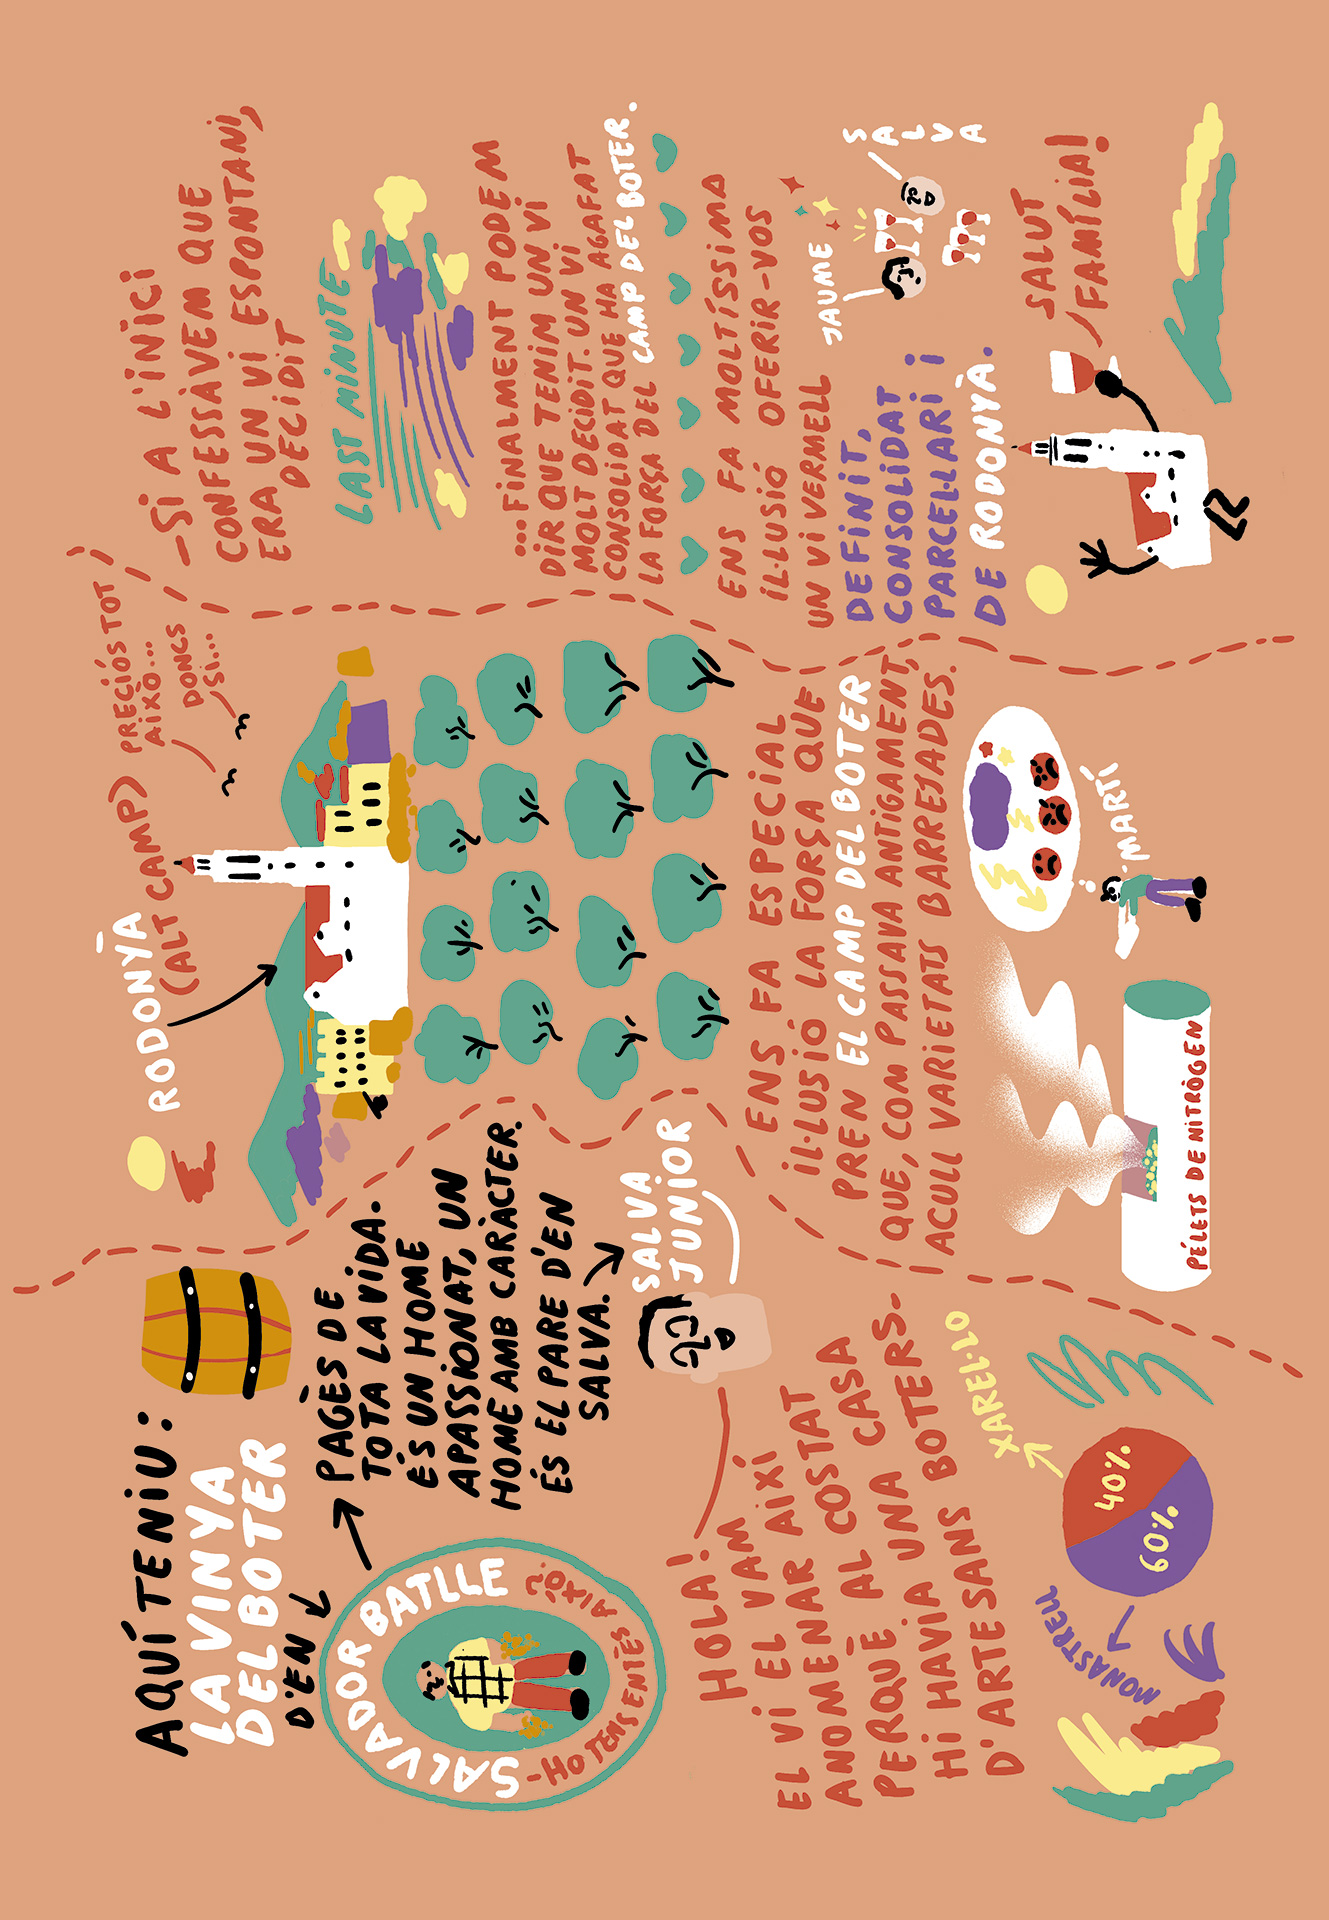 AQUÍ TENIU:
LA VINYA
DEL BOTER
D'EN
SALVADOR BATLLE
-HO TENS ENTÈS AIXÒ?
PAGÈS DE
TOTA LA VIDA.
ÉS UN HOME
APASSIONAT, UN
HOME AMB CARÀCTER.
ÉS EL PARE D'EN
SALVA.
SALVA
JUNIOR
HOLA!
EL VI EL VAM
ANOMENAR AIXÍ
PERQUÈ AL COSTAT
HI HAVIA UNA CASA
D'ARTESANS BOTERS-
XAREL·LO
40%
60%
MONASTREU
RODONYÀ
(ALT CAMP)
PRECIÓS TOT
AIXÒ...
DONCS
SI...
ENS FA ESPECIAL
IL·LUSIÓ LA FORÇA QUE
PREN EL CAMP DEL BOTER
QUE, COM PASSAVA ANTIGAMENT,
ACULL VARIETATS BARREJADES.
PÉLETS DE NITRÒGEN
MARTÍ
-SI A L'INICI
CONFESSÀVEM QUE
ERA UN VI ESPONTANI,
DECIDIT
LAST MINUTE
...FINALMENT PODEM
DIR QUE TENIM UN VI
MOLT DECIDIT. UN VI
CONSOLIDAT QUE HA AGAFAT
LA FORÇA DEL CAMP DEL BOTER.
ENS FA MOLTÍSSIMA
IL·LUSIÓ OFERIR-VOS
UN VI VERMELL
DEFINIT,
CONSOLIDAT
PARCEL·LARI I
DE RODONYÀ.
JAUME
SALVA
SALUT
FAMÍLIA!